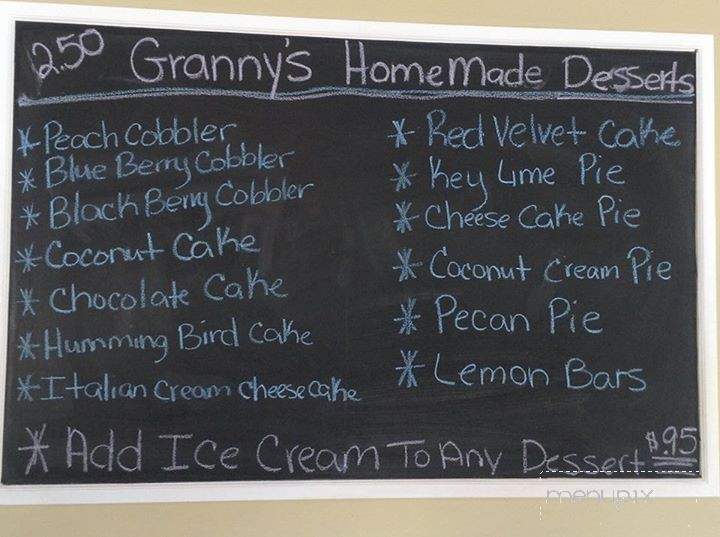 2.50 Granny's HomeMade Desserts
* Peach Cobbler
* Blue Berry Cobbler
* Black Berry Cobbler
* Coconut Cake
* Chocolate Cake
* Humming Bird Cake
* Italian Cream cheese cake
* Red Velvet Cake
* Key Lime Pie
* Cheese Cake Pie
* Coconut Cream Pie
* Pecan Pie
* Lemon Bars
* Add Ice Cream To Any Dessert $.95
menupix